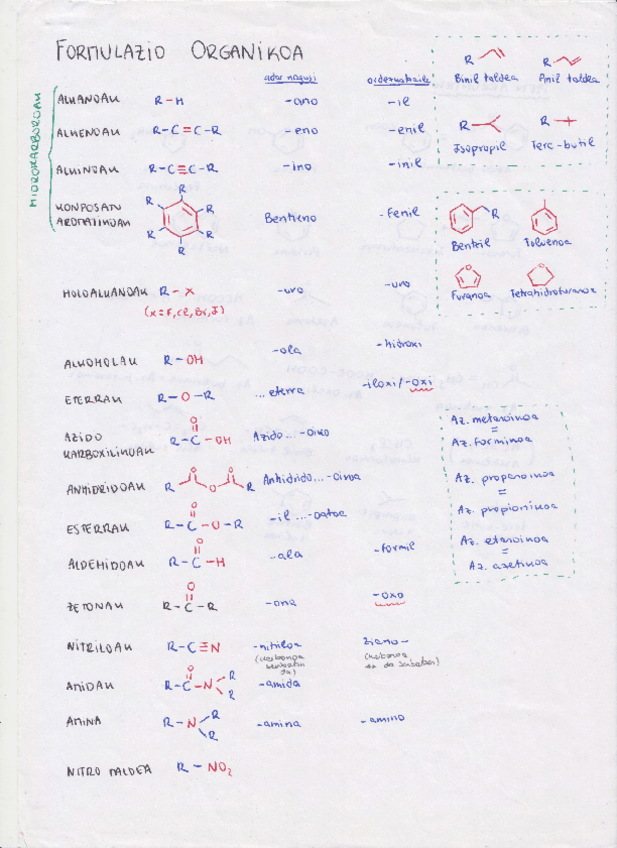 FORMULAZIO ORGANIKOA
adar nagusi ordezkatzaile
HIDROKARBUROAK
ALKANOAK R-H -ano -il
ALKENOAK R-C=C-R -eno -enil
ALKINOAK R-C≡C-R -ino -inil
KONPOSATU
AROMATIKOAK R R R R R R Bentzeno -fenil
HALOALKANOAK R-X -uro -uro
(X=F, Cl, Br, I)
ALKOHOLAK R-OH -ola -hidroxi
ETERRAK R-O-R ...eterra -iloxi/-oxi
AZIDO
KARBOXILIKOAK R-C-OH O Azido...-oiko
ANHIDRIDOAK R O O O R Anhidrido...-oikoa
ESTERRAK R-C-O-R O -il ...-oatoa
ALDEHIDOAK R-C-H O -ala -formil
ZETONAK R-C-R O -ona -oxo
NITRILOAK R-C≡N -nitriloa ziano-
(Karbonoa
da)
(Karbonoa
ez da zenbatzen)
AMIDAK R-C-N R R O -amida
AMINA R-N R R -amina -amino
NITRO TALDEA R-NO2
R R
Binil taldea Alil taldea
R R
Isopropil Terc-butil
R
Bentzil Toluenoa
O O
Furanoa Tetrahidrofuranoa
Az. metanoikoa
=
Az. formikoa
Az. propanoikoa
=
Az. propionikoa
Az. etanoikoa
=
Az. azetikoa